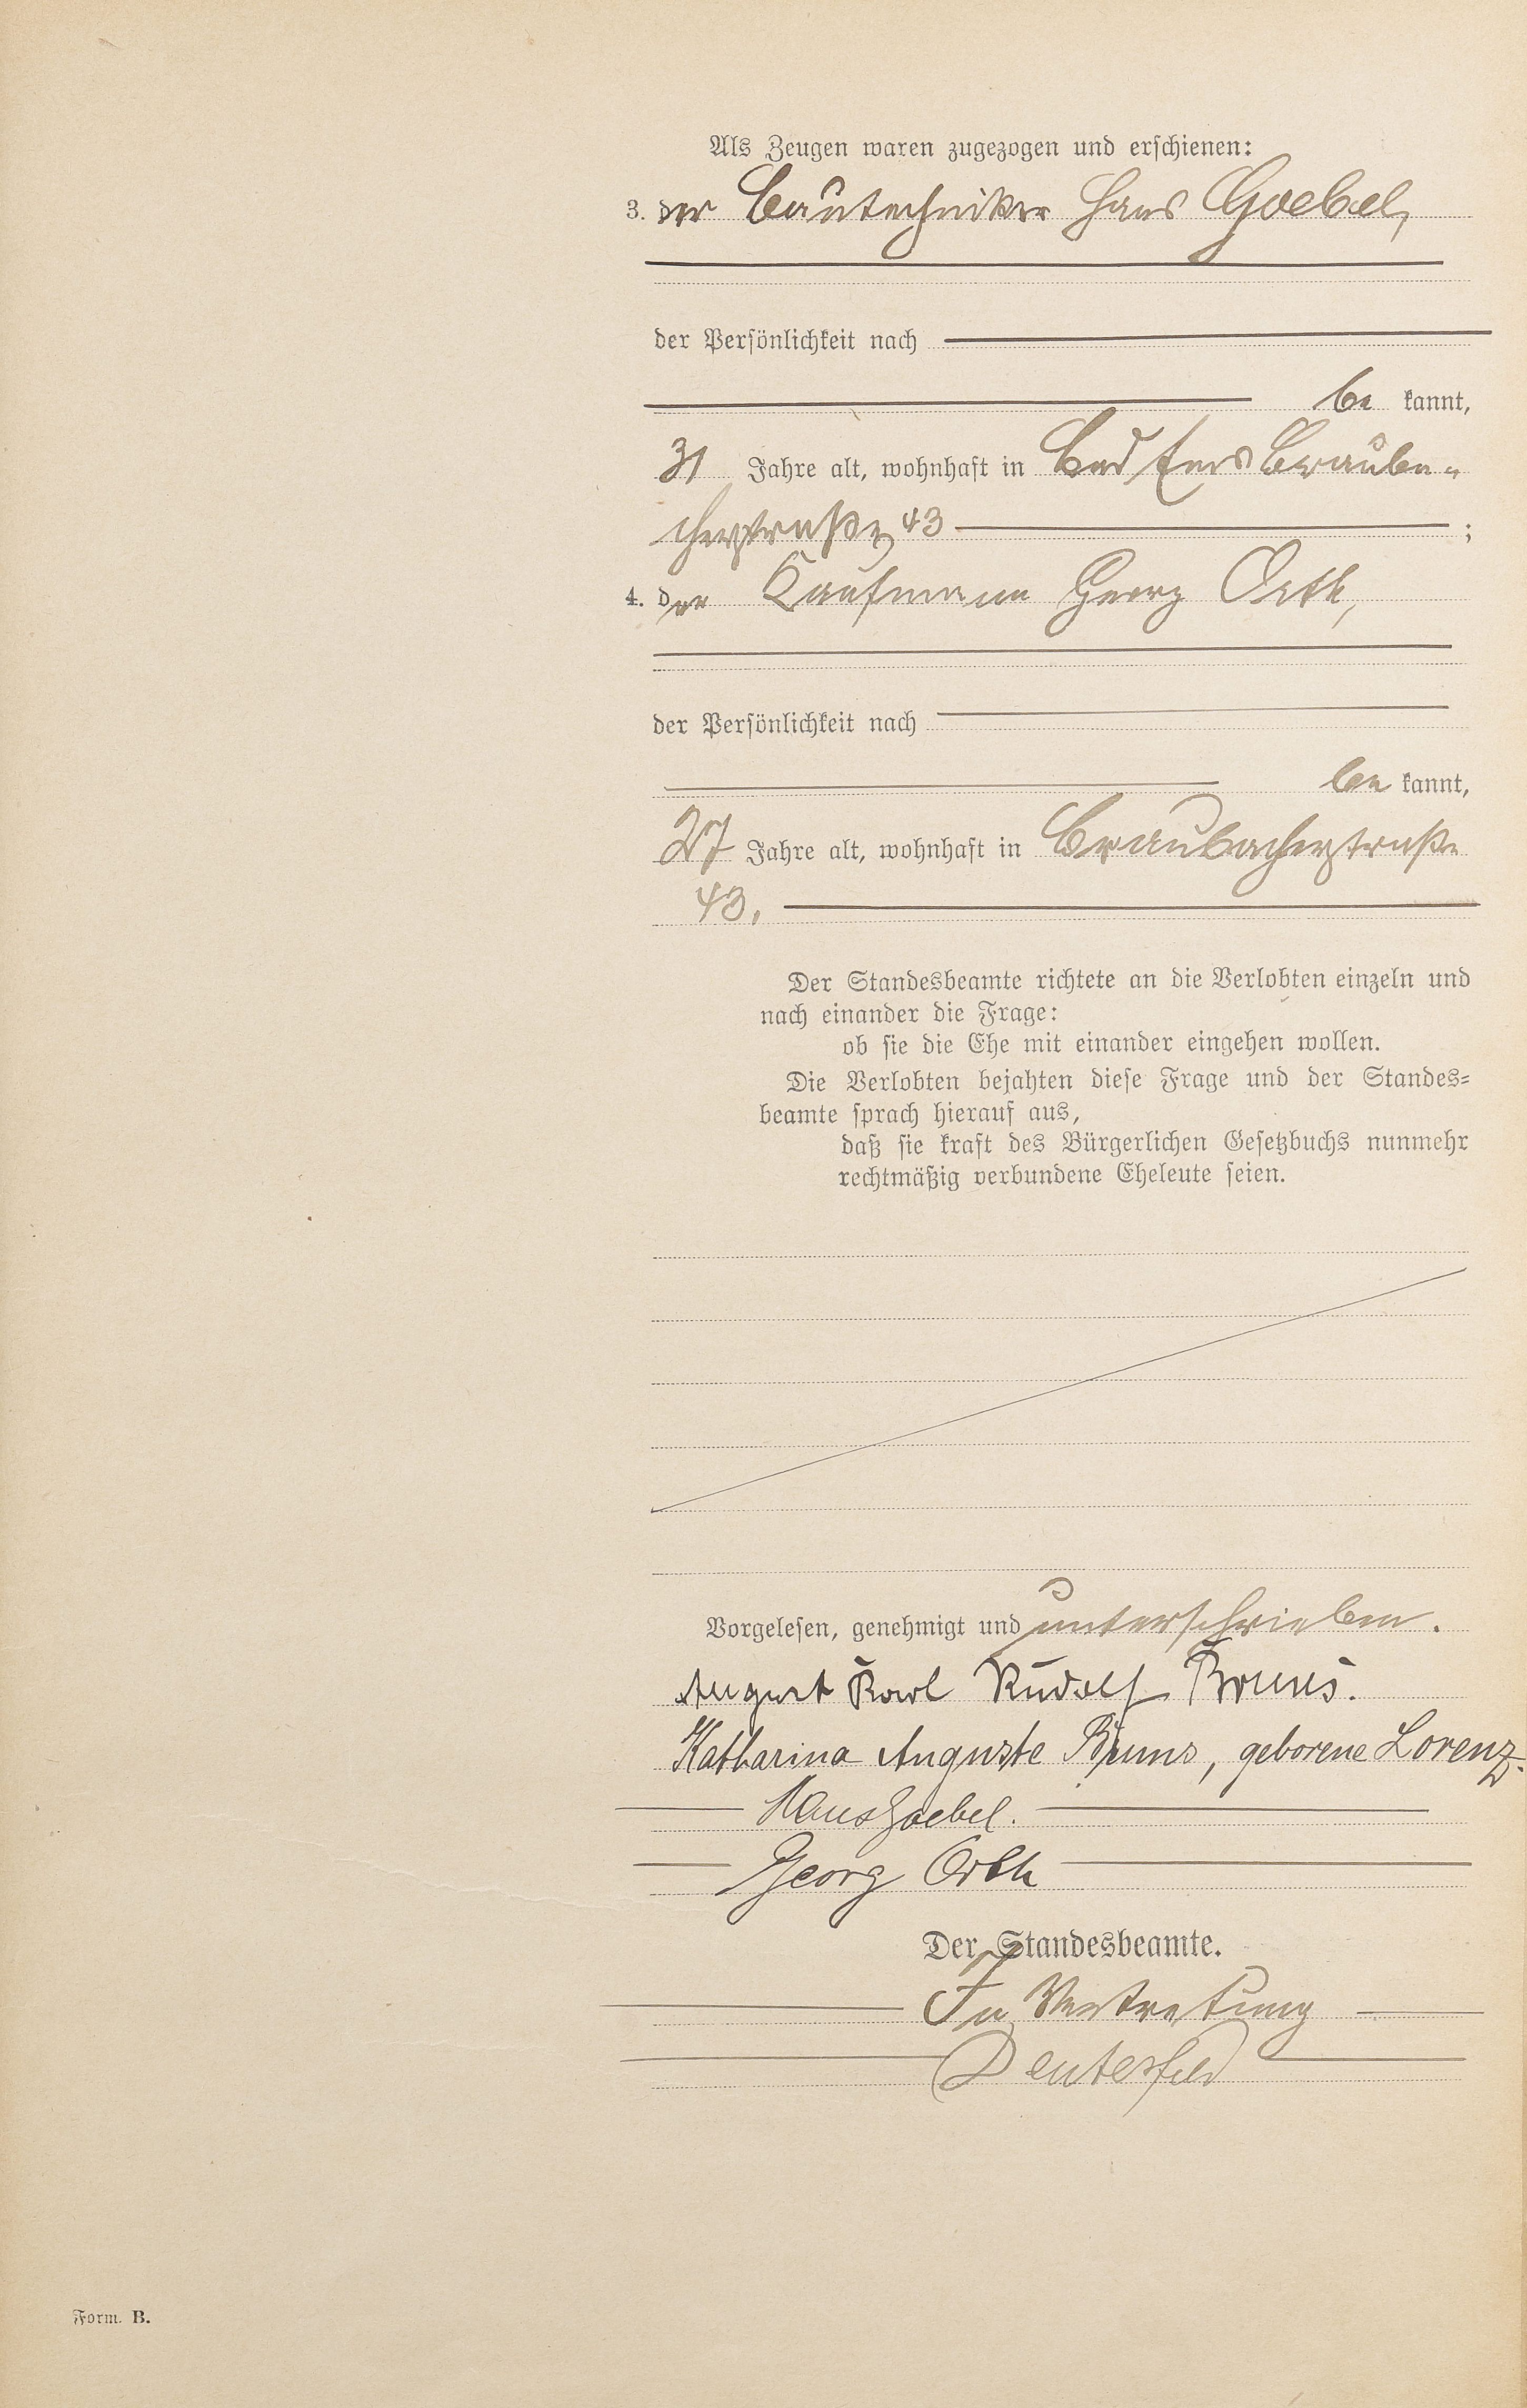 Als Zeugen waren zugezogen und erschienen:
3. der Bautechniker Hans Goebel,
der Persönlichkeit nach
be kannt,
31 Jahre alt, wohnhaft in Bad Ems Brauba-
cherstraße 43 ;
4. der Kaufmann Georg Orth,
der Persönlichkeit nach
be kannt,
27 Jahre alt, wohnhaft in Braubacherstraße
43.
Der Standesbeamte richtete an die Verlobten einzeln und
nach einander die Frage:
ob sie die Ehe mit einander eingehen wollen.
Die Verlobten bejahten diese Frage und der Standes-
beamte sprach hierauf aus,
daß sie kraft des Bürgerlichen Gesetzbuchs nunmehr
rechtmäßig verbundene Eheleute seien.
Vorgelesen, genehmigt und unterschrieben.
August Karl Rudolf Bruns.
Katharina Auguste Bruns, geborene Lorenz.
Hans Goebel.
Georg Orth
Der Standesbeamte.
In Vertretung
Form. B.